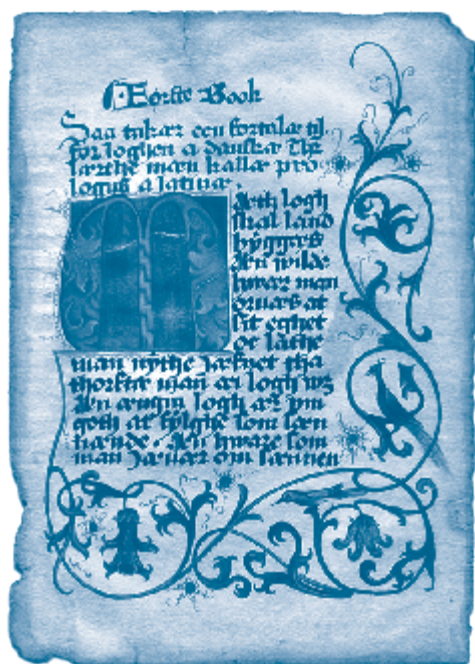 Förste Book
Saa takær een fortalæ til
for loghen a danskæ Thz
lærthe mæn kallæ pro-
logus a latinæ .
Mæth logh
skal land
byggæs
Æn wilde
hwær man
oruæs at
sit eghet
oc lathe
mæn nythe Jæfnet tha
thorfte man æi logh wz
Æn ængin logh ær ym
goth at fylghe som sæn
hænde . Æn hware som
man Jæuær om sænnen